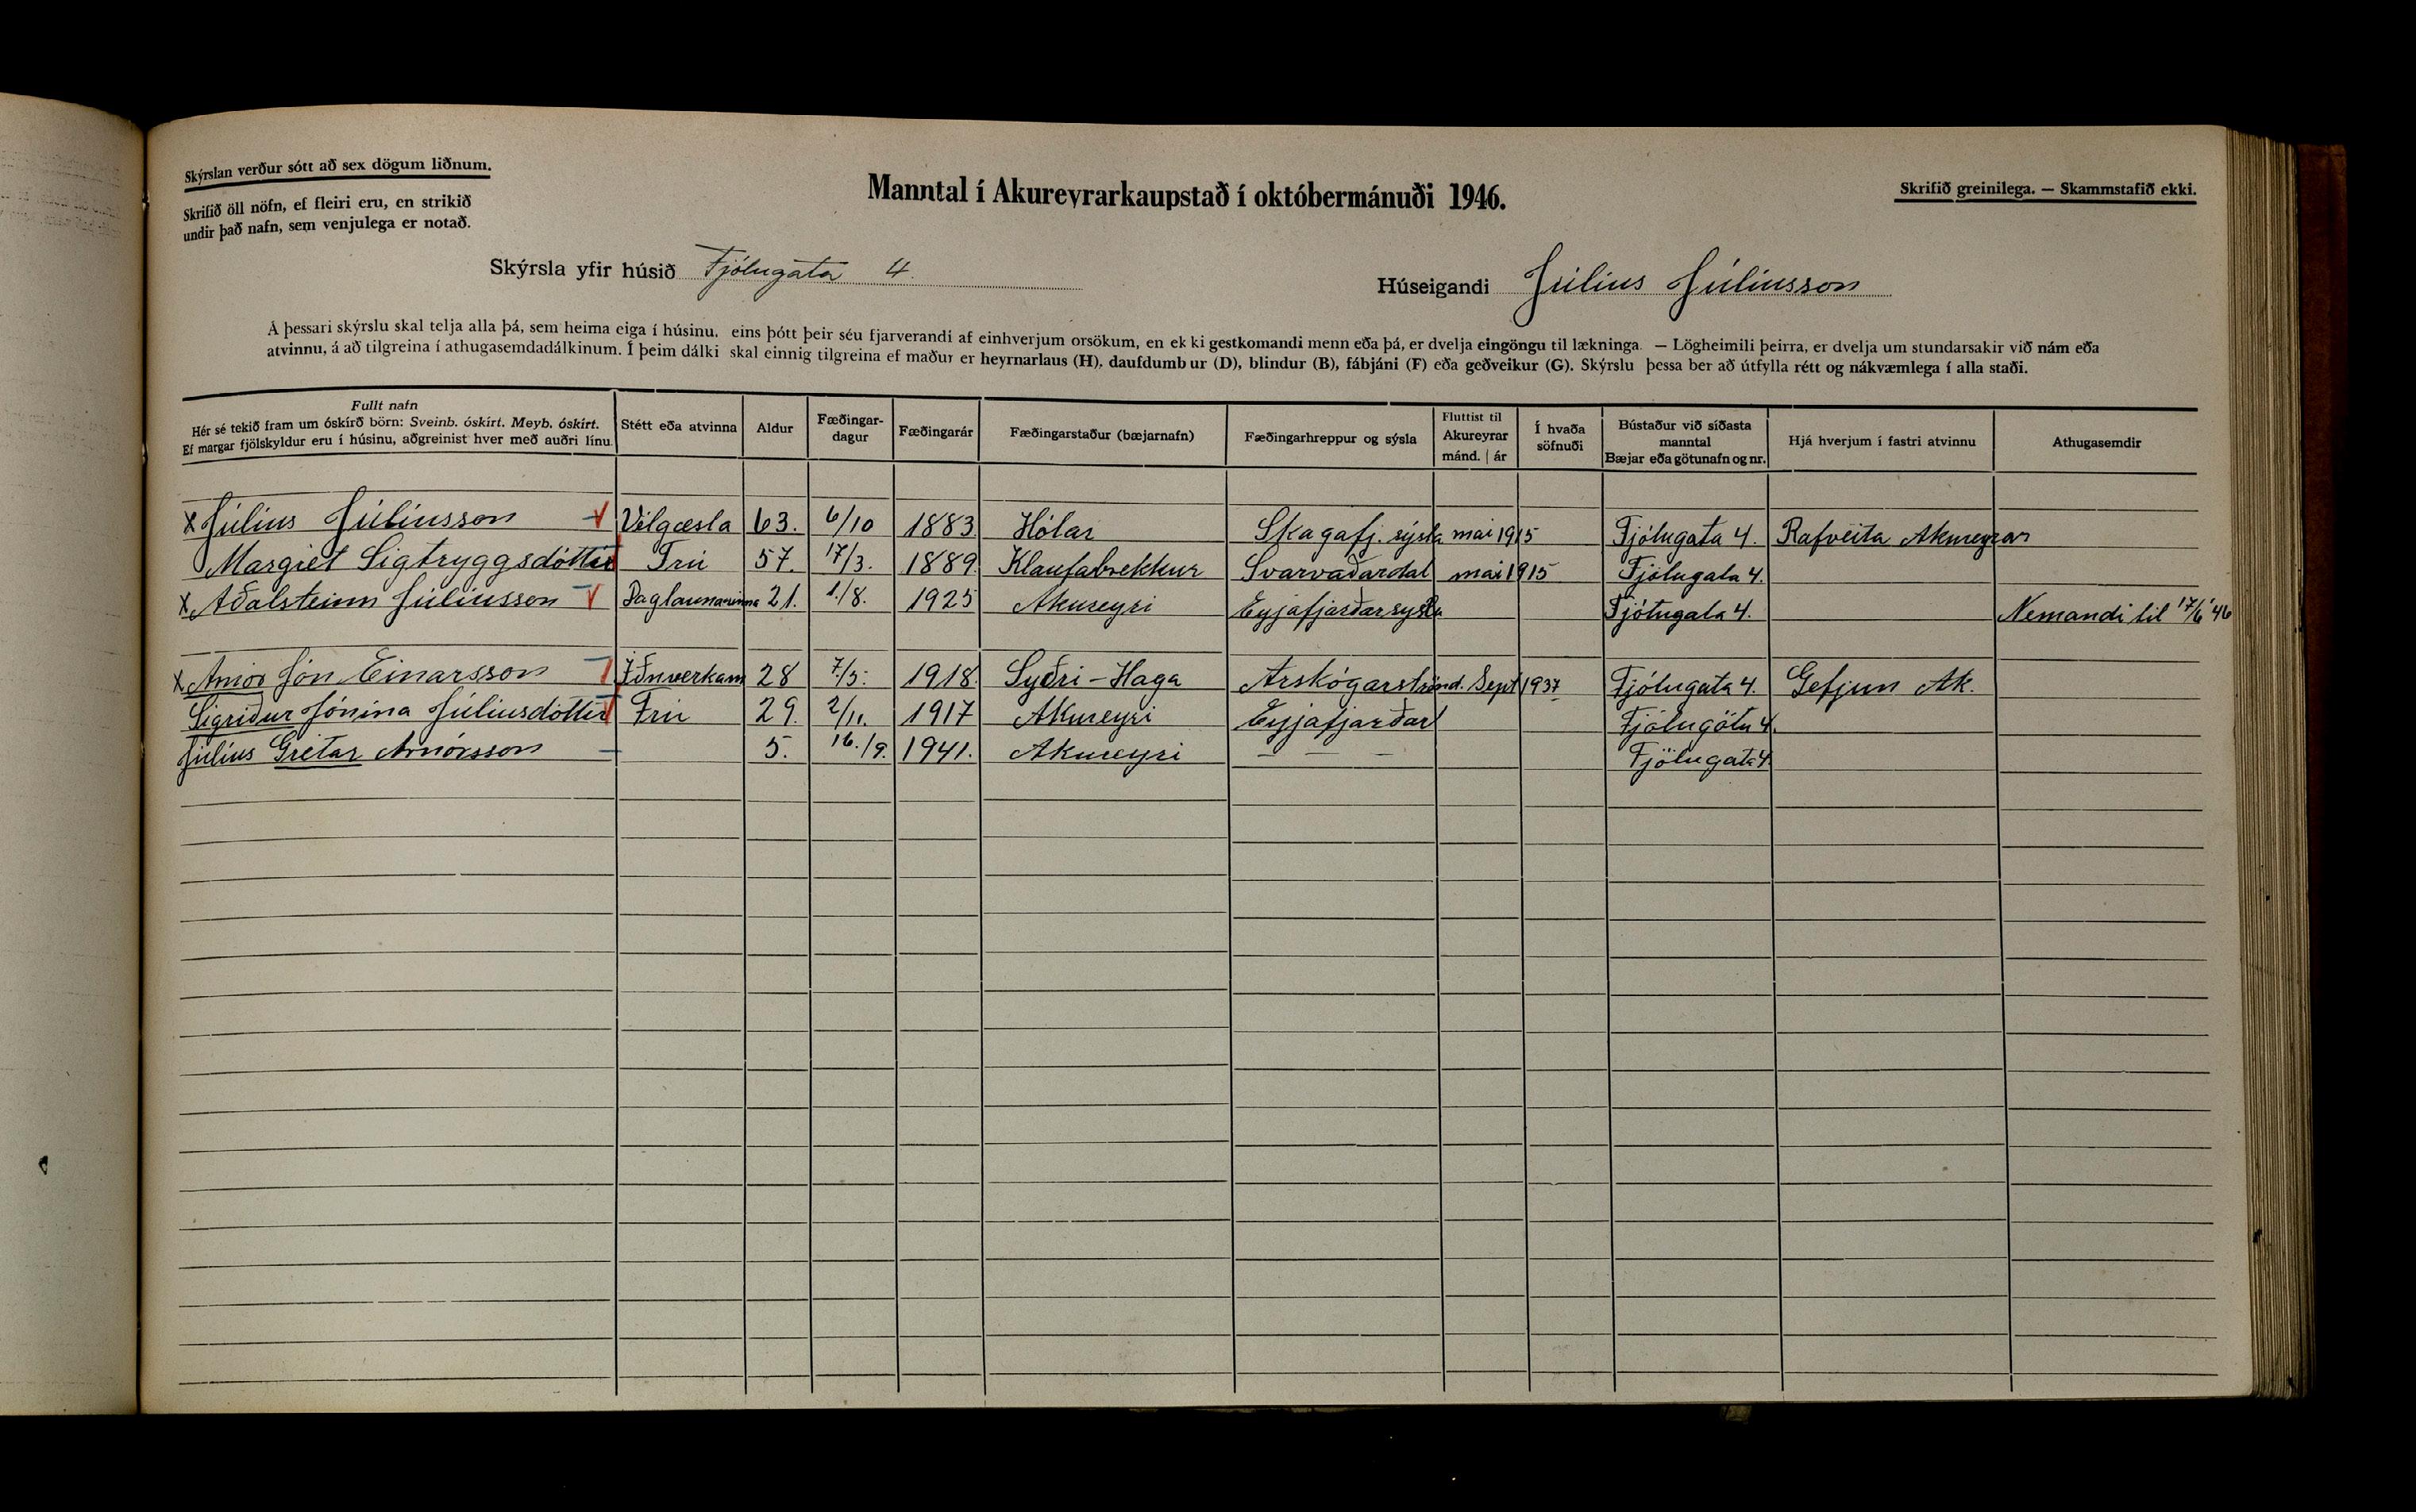 Skýrslan verður sótt að sex dögum liðnum.
Skrifið öll nöfn, ef fleiri eru, en strikið
undir það nafn, sem venjulega er notað.
Manntal í Akureyrarkaupstað í októbermánuði 1946.
Skrifið greinilega. — Skammstafið ekki.
Skýrsla yfir húsið Fjólugata 4.
Húseigandi Júlíus Júlíusson
Á þessari skýrslu skal telja alla þá, sem heima eiga í húsinu, eins þótt þeir séu fjarverandi af einhverjum orsökum, en ekki gestkomandi menn eða þá, er dvelja eingöngu til lækninga. — Lögheimili þeirra, er dvelja um stundarsakir við nám eða
atvinnu, á að tilgreina í athugasemdadálkinum. Í þeim dálki skal einnig tilgreina ef maður er heyrnarlaus (H), daufdumbur (D), blindur (B), fábjáni (F) eða geðveikur (G). Skýrslu þessa ber að útfylla rétt og nákvæmlega í alla staði.
Fullt nafn
Hér sé tekið fram um óskírð börn: Sveinb. óskírt. Meyb. óskírt.
Ef margar fjölskyldur eru í húsinu, aðgreinist hver með auðri línu.
Stétt eða atvinna
Aldur
Fæðingar-
dagur
Fæðingarár
Fæðingarstaður (bæjarnafn)
Fæðingarhreppur og sýsla
Fluttist til
Akureyrar
mánd. | ár
Í hvaða
söfnuði
Bústaður við síðasta
manntal
Bæjar eða götunafn og nr.
Hjá hverjum í fastri atvinnu
Athugasemdir
x Júlíus Júlíusson Vélgæsla 63. 6/10 1883 Hólar Skagafj. sýsla mai 1915 Fjólugata 4. Rafveita Akureyrar
Margrét Sigtryggsdóttir Frú 57. 17/3. 1889 Klaufabrekkur Svarvaðardal mai 1915 Fjólugata 4.
x Aðalsteinn Júlíusson Daglaunavinna 21. 1./8. 1925 Akureyri Eyjafjarðarsýsla Fjólugata 4. Nemandi til 17/6 '46
x Arnór Jón Einarsson Iðnverkam 28 7/5. 1918. Syðri-Haga Árskógarströnd. Sept 1937 Fjólugata 4. Gefjun Ak.
Sigríður Jónína Júlíusdóttir Frú 29. 2/11. 1917 Akureyri Eyjafjarðar Fjólugötu 4.
Júlíus Grétar Arnórsson 5. 16./9. 1941. Akureyri — — — Fjólugata 4.